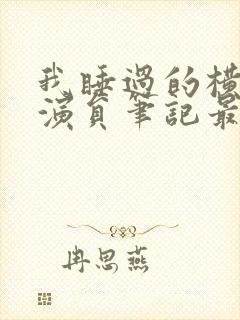 我睡過的橫
演員筆記最
冉思燕